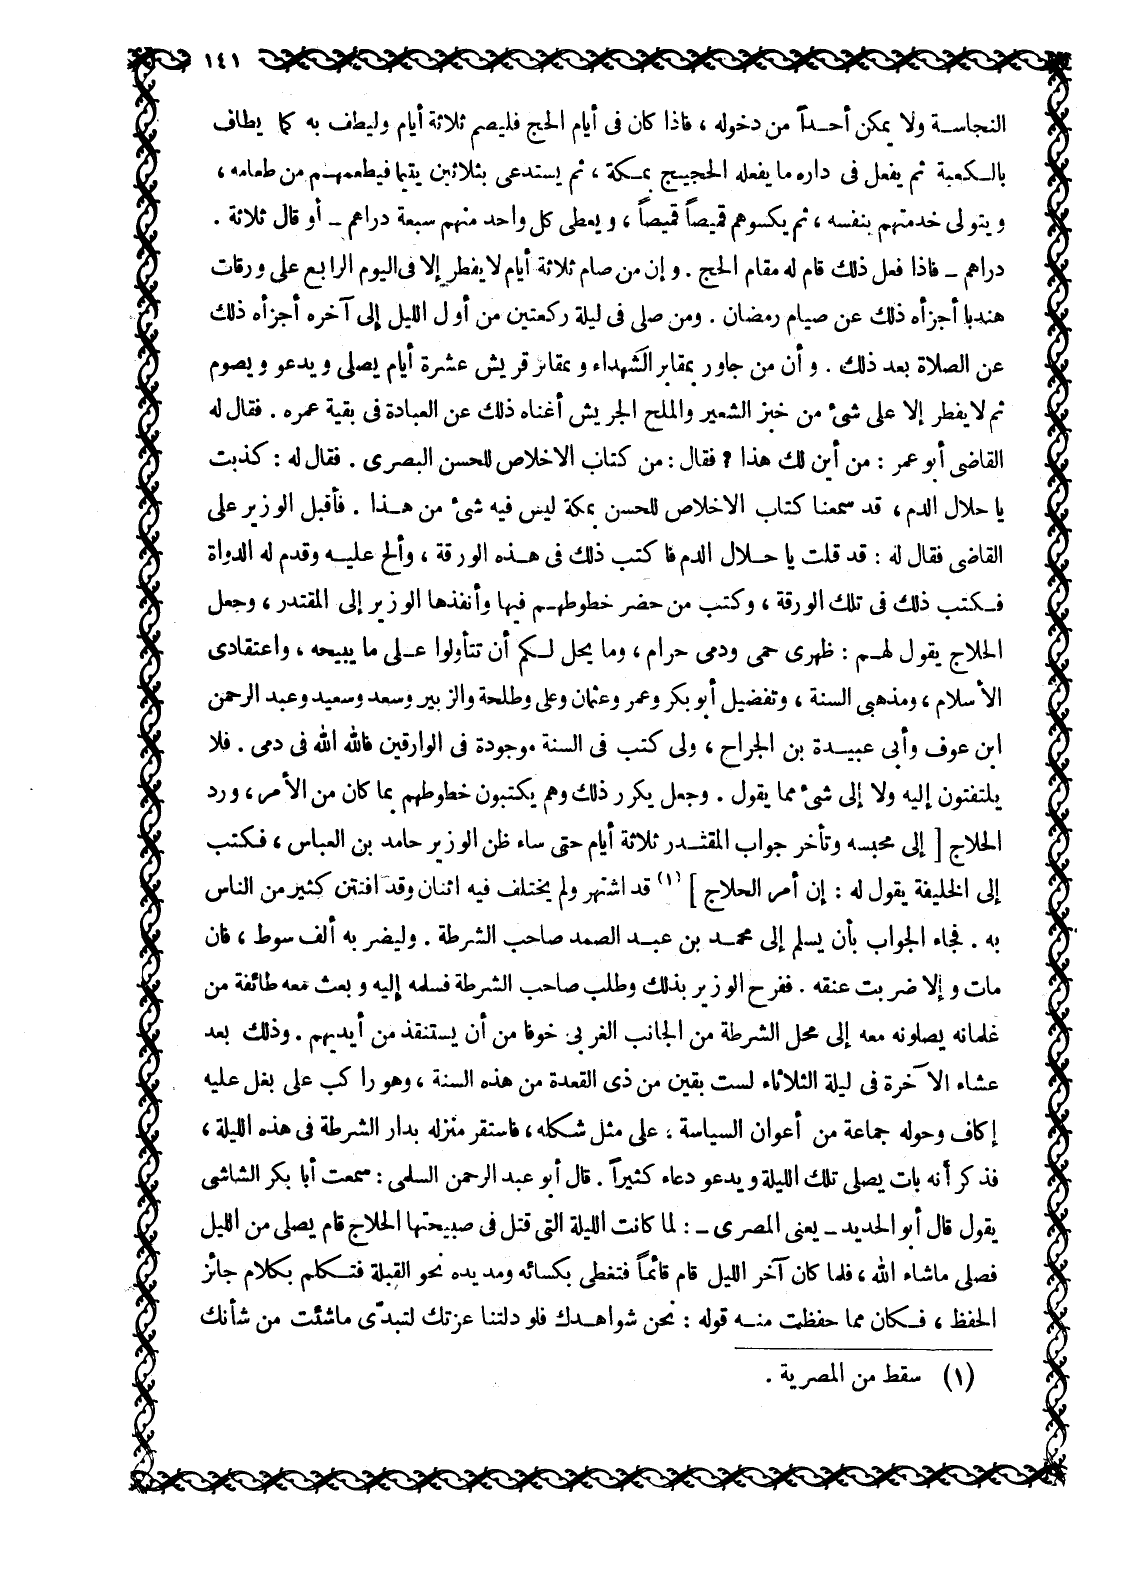 ١٤١
النجاسة ولا يمكن أحداً من دخوله ، فاذا كان فى أيام الحج فليصم ثلاثة أيام وليطف به كما يطاف
بالكعبة ثم يفعل فى داره ما يفعله الحجيج بمكة ، ثم يستدعى بثلاثين يتيما فيطعمهم من طعامه ،
ويتولى خدمتهم بنفسه ، ثم يكسوهم قميصاً قميصاً ، ويعطى كل واحد منهم سبعة دراهم ـ أو قال ثلاثة .
دراهم ـ فاذا فعل ذلك قام له مقام الحج . وإن من صام ثلاثة أيام لا يفطر إلا فى اليوم الرابع على ورقات
هندبا أجزأه ذلك عن صيام رمضان . ومن صلى فى ليلة ركعتين من أول الليل إلى آخره أجزأه ذلك
عن الصلاة بعد ذلك . وأن من جاور بمقابر الشهداء وبمقابر قريش عشرة أيام يصلى ويدعو ويصوم
ثم لا يفطر إلا على شىء من خبز الشعير والملح الجريش أغناه ذلك عن العبادة فى بقية عمره . فقال له
القاضى أبو عمر : من أين لك هذا ؟ فقال : من كتاب الاخلاص للحسن البصرى . فقال له : كذبت
يا حلال الدم ، قد سمعنا كتاب الاخلاص للحسن بمكة ليس فيه شىء من هذا . فأقبل الوزير على
القاضى فقال له : قد قلت يا حلال الدم فاكتب ذلك فى هذه الورقة ، وألح عليه وقدم له الدواة
فكتب ذلك فى تلك الورقة ، وكتب من حضر خطوطهم فيها وأنفذها الوزير إلى المقتدر ، وجعل
الحلاج يقول لهم : ظهرى حمى ودمى حرام ، وما يحل لكم أن تتأولوا على ما يبيحه ، واعتقادى
الأسلام ، ومذهبى السنة ، وتفضيل أبو بكر وعمر وعثمان وعلى وطلحة والزبير وسعد وسعيد وعبد الرحمن
ابن عوف وأبى عبيدة بن الجراح ، ولى كتب فى السنة موجودة فى الوارقين فالله الله فى دمى . فلا
يلتفتون إليه ولا إلى شىء مما يقول . وجعل يكرر ذلك وهم يكتبون خطوطهم بما كان من الأمر ، ورد
الحلاج [ إلى محبسه وتأخر جواب المقتدر ثلاثة أيام حتى ساء ظن الوزير حامد بن العباس ، فكتب
إلى الخليفة يقول له : إن أمر الحلاج ] (١) قد اشتهر ولم يختلف فيه اثنان وقد افتتن كثير من الناس
به . فجاء الجواب بأن يسلم إلى محمد بن عبد الصمد صاحب الشرطة . وليضر به ألف سوط ، فان
مات وإلا ضربت عنقه . ففرح الوزير بذلك وطلب صاحب الشرطة فسلمه إليه وبعث معه طائفة من
غلمانه يصلونه معه إلى محل الشرطة من الجانب الغربى خوفا من أن يستنقذ من أيديهم . وذلك بعد
عشاء الآخرة فى ليلة الثلاثاء لست بقين من ذى القعدة من هذه السنة ، وهو راكب على بغل عليه
إكاف وحوله جماعة من أعوان السياسة ، على مثل شكله ، فاستقر منزله بدار الشرطة فى هذه الليلة ،
فذكر أنه بات يصلى تلك الليلة ويدعو دعاء كثيراً . قال أبو عبد الرحمن السلمى : سمعت أبا بكر الشاشى
يقول قال أبو الحديد ـ يعنى المصرى ـ : لما كانت الليلة التى قتل فى صبيحتها الحلاج قام يصلى من الليل
فصلى ما شاء الله ، فلما كان آخر الليل قام قائماً فتغطى بكسائه ومد يده نحو القبلة فتكلم بكلام جائز
الحفظ ، فكان مما حفظت منه قوله : نحن شواهدك فلو دلتنا عزتك لتبدّى ما شئت من شأنك
(١) سقط من المصرية .